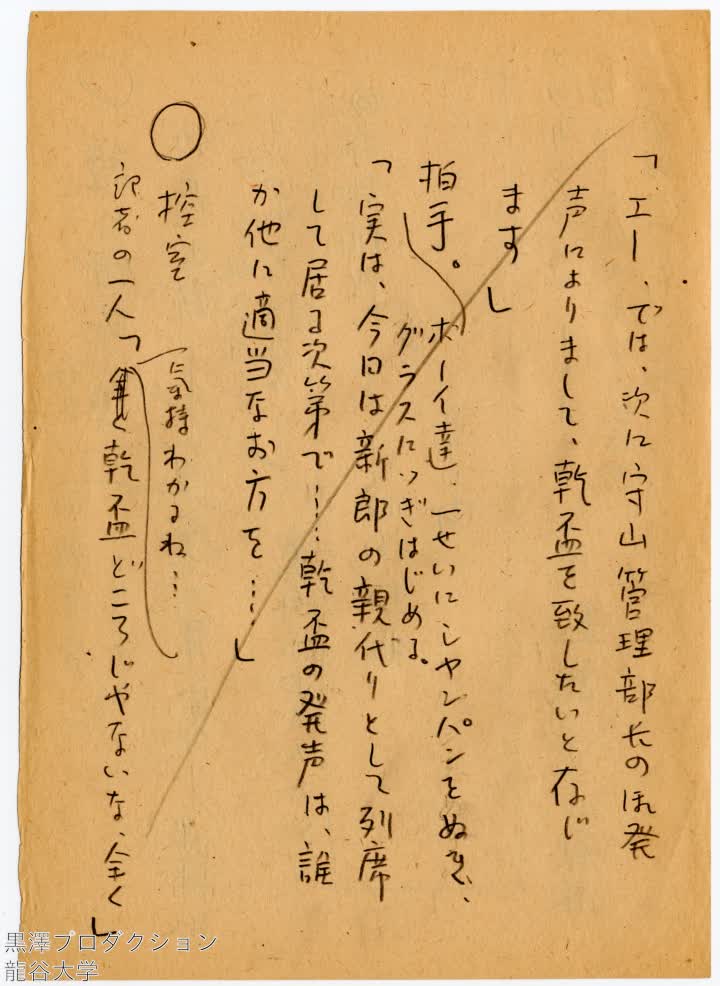 「エー、では、次に守山管理部長の御発
声によりまして、乾盃を致したいと存じ
ます」
拍手。ボーイ達、一せいにシャンパンをぬき、
グラスにつぎはじめる。
「実は、今日は新郎の親代りとして列席
して居る次第で……乾盃の発声は、誰
か他に適当なお方を……」
控室
気持わかるね…
記者の一人「乾盃どころじゃないな、全く」
黒澤プロダクション
龍谷大学